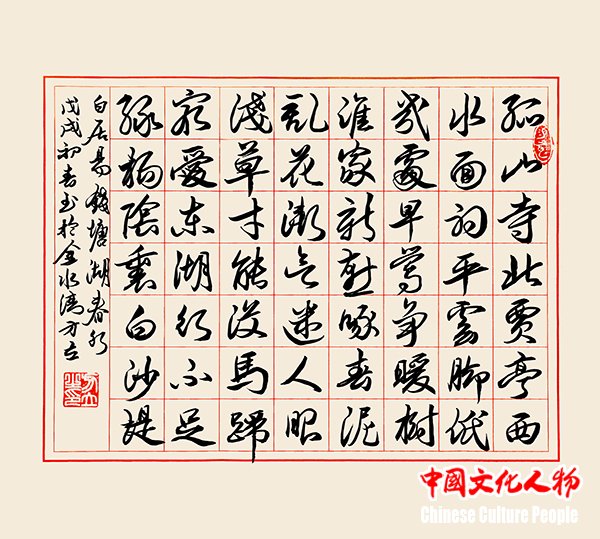 孤山寺北贾亭西
水面初平雲脚低
幾處早莺争暖樹
誰家新燕啄春泥
乱花漸欲迷人眼
淺草才能没馬蹄
最愛东湖行不足
緑楊陰裏白沙堤
白居易錢塘湖春行
戊戌初春书於金水湾方立
中国文化人物
Chinese Culture People